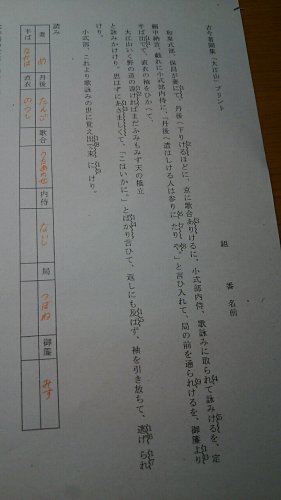 古今著聞集「大江山」プリント
組　番 名前
和泉式部、保昌が妻にて、丹後へ下りけるほどに、京に歌合ありけるに、小式部内侍、歌詠みに取られて詠みけるを、定
頼中納言、戯れに小式部内侍に、「丹後へ遣はしける人は参りにたりや。」と言ひ入れて、局の前を通られけるを、御簾より
半ば出でて、直衣の袖をひかへて、
大江山いく野の道の遠ければまだふみもみず天の橋立
と詠みかけけり。思はずにあさましくて、「こはいかに。」とばかり言ひて、返しにも及ばず、袖を引き放ちて、逃げられ
けり。
小式部、これより歌詠みの世に覚え出で来にけり。
読み
妻 め 丹後 たんご 歌合 うたあわせ 内侍 ないし 局 つぼね 御簾 みす
半ば なかば 直衣 のうし